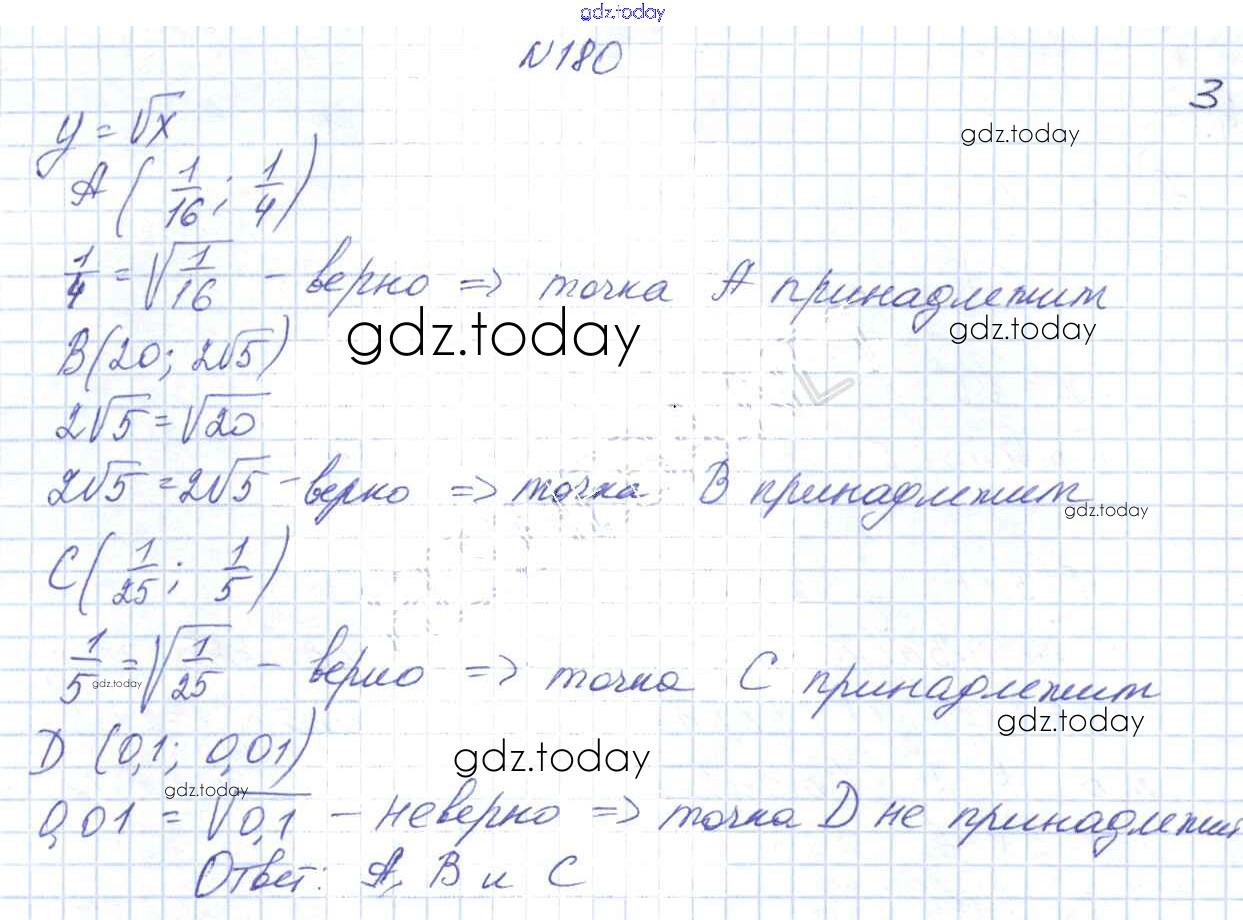 gdz.today
N180
3
y = √x
gdz.today
A (1/16; 1/4)
1/4 = √(1/16) – верно => точка A принадлежит
gdz.today
gdz.today
B(20; 2√5)
2√5 = √20
2√5 = 2√5 – верно => точка B принадлежит
gdz.today
C(1/25; 1/5)
1/5 = √(1/25) – верно => точка C принадлежит
gdz.today
gdz.today
D (0,1; 0,01)
gdz.today
gdz.today
0,01 = √0,1 – неверно => точка D не принадлежит
Ответ: A, B и C